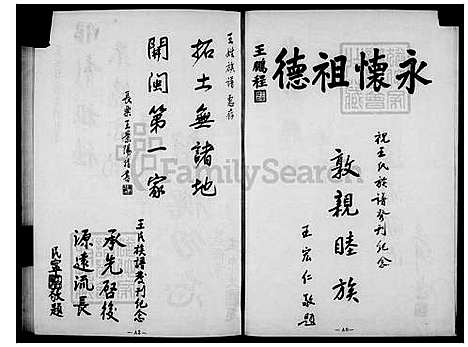 永懷祖德
王鵬程
祝王氏族譜發刊紀念
敦親睦族
王宏仁敬題
—A3—
王姓族譜惠存
拓土無諸地
開閩第一家
長樂王
王氏族譜發刊紀念
承先啓後
源遠流長
敬題
—A2—
FamilySearch